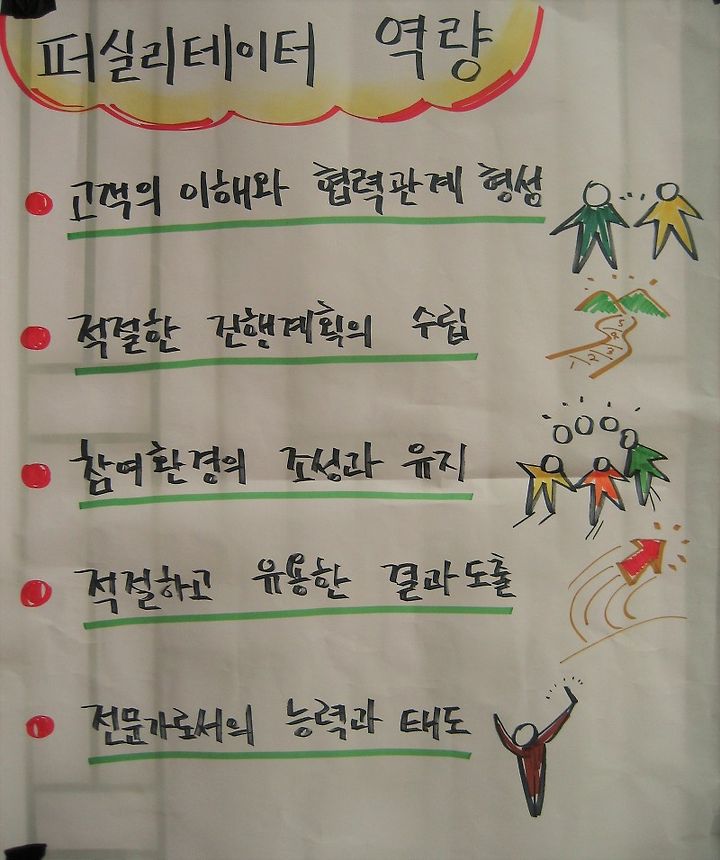 퍼실리테이터 역량
고객의 이해와 협력관계 형성
적절한 진행계획의 수립
1 2 3 4 5
참여환경의 조성과 유지
적절하고 유용한 결과도출
전문가로서의 능력과 태도